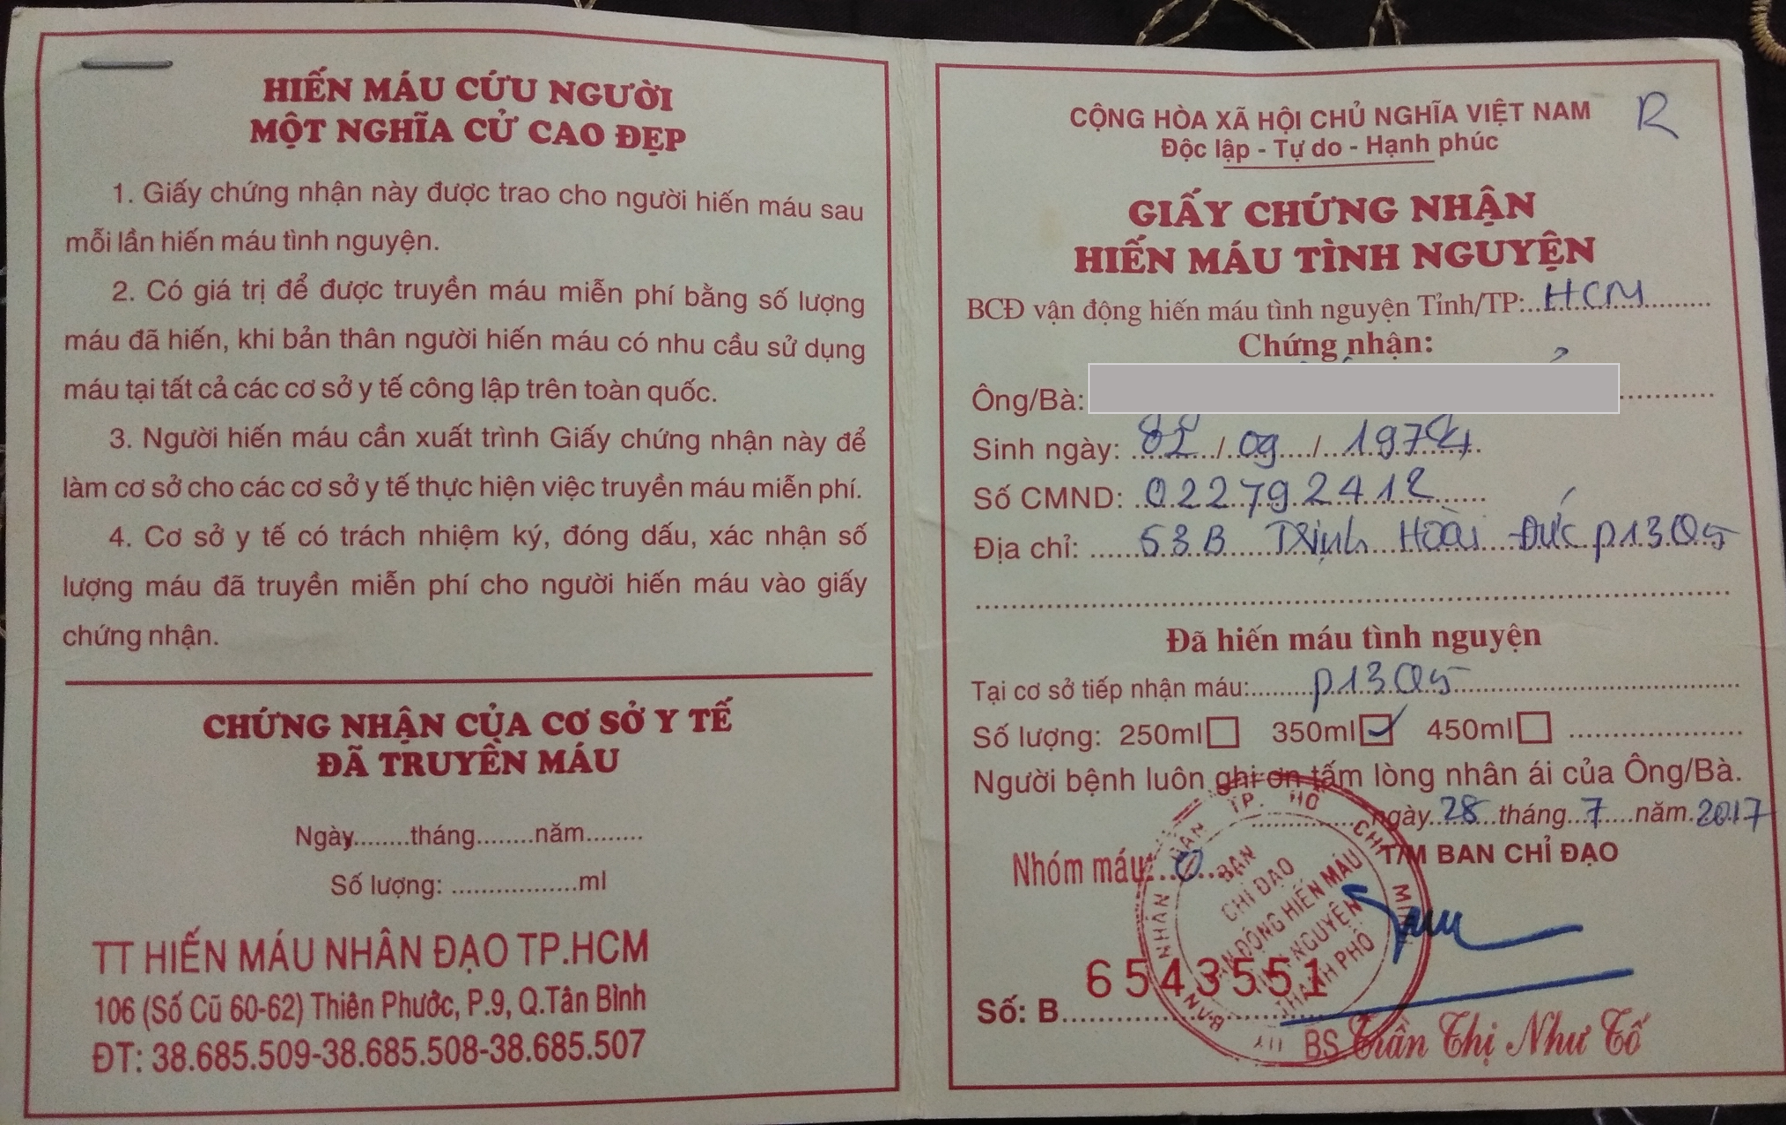 HIẾN MÁU CỨU NGƯỜI
MỘT NGHĨA CỬ CAO ĐẸP
1. Giấy chứng nhận này được trao cho người hiến máu sau
mỗi lần hiến máu tình nguyện.
2. Có giá trị để được truyền máu miễn phí bằng số lượng
máu đã hiến, khi bản thân người hiến máu có nhu cầu sử dụng
máu tại tất cả các cơ sở y tế công lập trên toàn quốc.
3. Người hiến máu cần xuất trình Giấy chứng nhận này để
làm cơ sở cho các cơ sở y tế thực hiện việc truyền máu miễn phí.
4. Cơ sở y tế có trách nhiệm ký, đóng dấu, xác nhận số
lượng máu đã truyền miễn phí cho người hiến máu vào giấy
chứng nhận.
CHỨNG NHẬN CỦA CƠ SỞ Y TẾ
ĐÃ TRUYỀN MÁU
Ngày........tháng........năm........
Số lượng: ..................ml
TT HIẾN MÁU NHÂN ĐẠO TP.HCM
106 (Số Cũ 60-62) Thiên Phước, P.9, Q.Tân Bình
ĐT: 38.685.509-38.685.508-38.685.507
CỘNG HÒA XÃ HỘI CHỦ NGHĨA VIỆT NAM R
Độc lập - Tự do - Hạnh phúc
GIẤY CHỨNG NHẬN
HIẾN MÁU TÌNH NGUYỆN
BCĐ vận động hiến máu tình nguyện Tỉnh/TP: HCM
Chứng nhận:
Ông/Bà:
Sinh ngày: / 09 / 1974
Số CMND: 022792412
Địa chỉ: 53B Trịnh Hoài Đức p13Q5
Đã hiến máu tình nguyện
Tại cơ sở tiếp nhận máu: p13Q5
Số lượng: 250ml 350ml 450ml
Người bệnh luôn ghi ơn tấm lòng nhân ái của Ông/Bà.
ngày 28 tháng 7 năm 2017
T/M BAN CHỈ ĐẠO
Nhóm máu: O
ỦY BAN NHÂN DÂN TP. HỒ CHÍ MINH
BAN
CHỈ ĐẠO
VẬN ĐỘNG HIẾN MÁU
TÌNH NGUYỆN
THÀNH PHỐ
Số: B 6543551
BS Trần Thị Như Tố